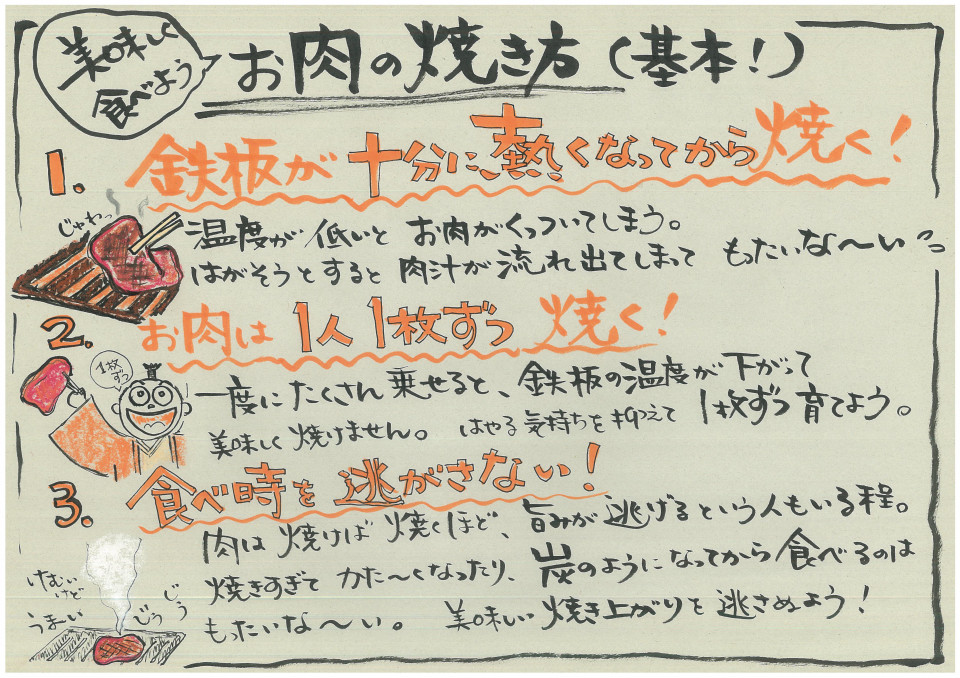 美味しく
食べよう
お肉の焼き方(基本！)
1. 鉄板が十分に熱くなってから焼く！
じゅわっ
温度が低いとお肉がくっついてしまう。
はがそうとすると肉汁が流れ出てしまってもったいな〜い
2. お肉は1人1枚ずつ焼く！
1枚
ずつ
一度にたくさん乗せると、鉄板の温度が下がって
美味しく焼けません。はやる気持ちを抑えて1枚ずつ育てよう。
3. 食べ時を逃がさない！
肉は焼けば焼くほど、旨みが逃げるという人もいる程。
焼きすぎてかた〜くなったり、炭のようになってから食べるのは
もったいな〜い。美味しい焼き上がりを逃さぬよう！
けむい
けど
うま〜い
じゅう
じゅう